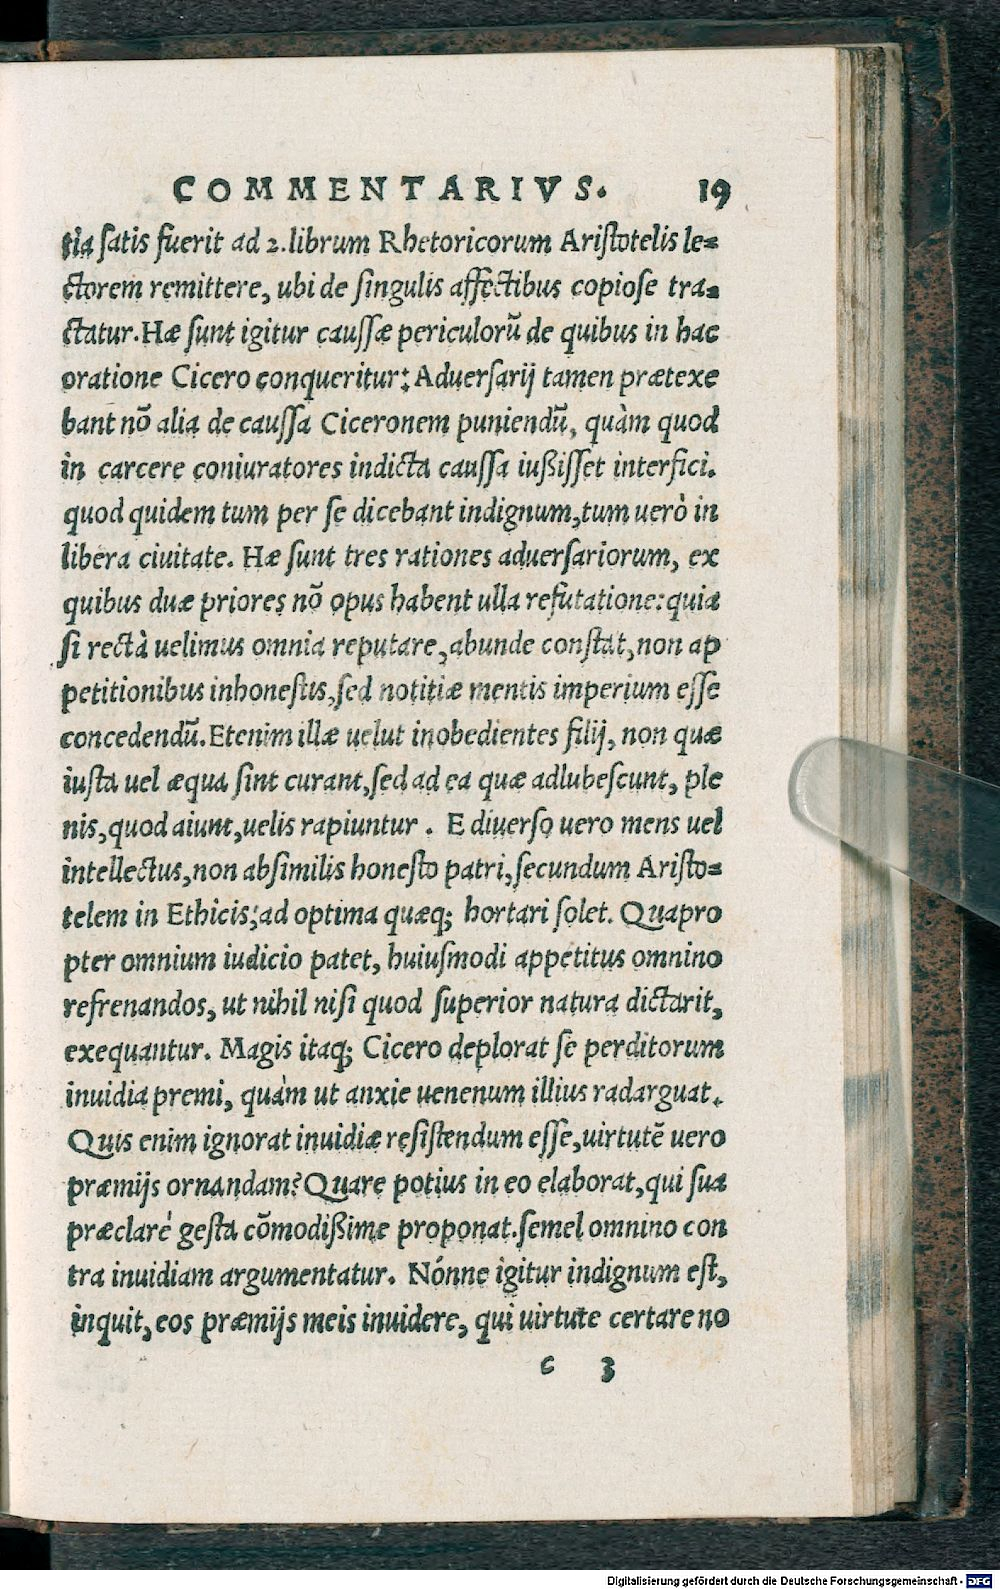 COMMENTARIVS. 19
tia ſatis fuerit ad 2. librum Rhetoricorum Ariſtotelis le=
ctorem remittere, ubi de ſingulis affectibus copioſe tra=
ctatur. Hæ ſunt igitur cauſſæ periculorũ de quibus in hac
oratione Cicero conqueritur: Aduerſarij tamen prætexe
bant nõ alia de cauſſa Ciceronem puniendũ, quàm quod
in carcere coniuratores indicta cauſſa iußiſſet interfici.
quod quidem tum per ſe dicebant indignum, tum uerò in
libera ciuitate. Hæ ſunt tres rationes aduerſariorum, ex
quibus duæ priores nõ opus habent ulla refutatione: quia
ſi rectà uelimus omnia reputare, abunde conſtat, non ap
petitionibus inhoneſtis, ſed notitiæ mentis imperium eſſe
concedendũ. Etenim illæ uelut inobedientes filij, non quæ
iuſta uel æqua ſint curant, ſed ad ea quæ adlubeſcunt, ple
nis, quod aiunt, uelis rapiuntur. E diuerſo uero mens uel
intellectus, non abſimilis honeſto patri, ſecundum Ariſto=
telem in Ethicis, ad optima quæq; hortari ſolet. Quapro
pter omnium iudicio patet, huiuſmodi appetitus omnino
refrenandos, ut nihil niſi quod ſuperior natura dictarit,
exequantur. Magis itaq; Cicero deplorat ſe perditorum
inuidia premi, quàm ut anxie uenenum illius radarguat.
Quis enim ignorat inuidiæ reſiſtendum eſſe, uirtutẽ uero
præmijs ornandam? Quare potius in eo elaborat, qui ſua
præclarè geſta cõmodißime proponat. ſemel omnino con
tra inuidiam argumentatur. Nónne igitur indignum eſt,
inquit, eos præmijs meis inuidere, qui uirtute certare no
c 3
Digitalisierung gefördert durch die Deutsche Forschungsgemeinschaft - DFG